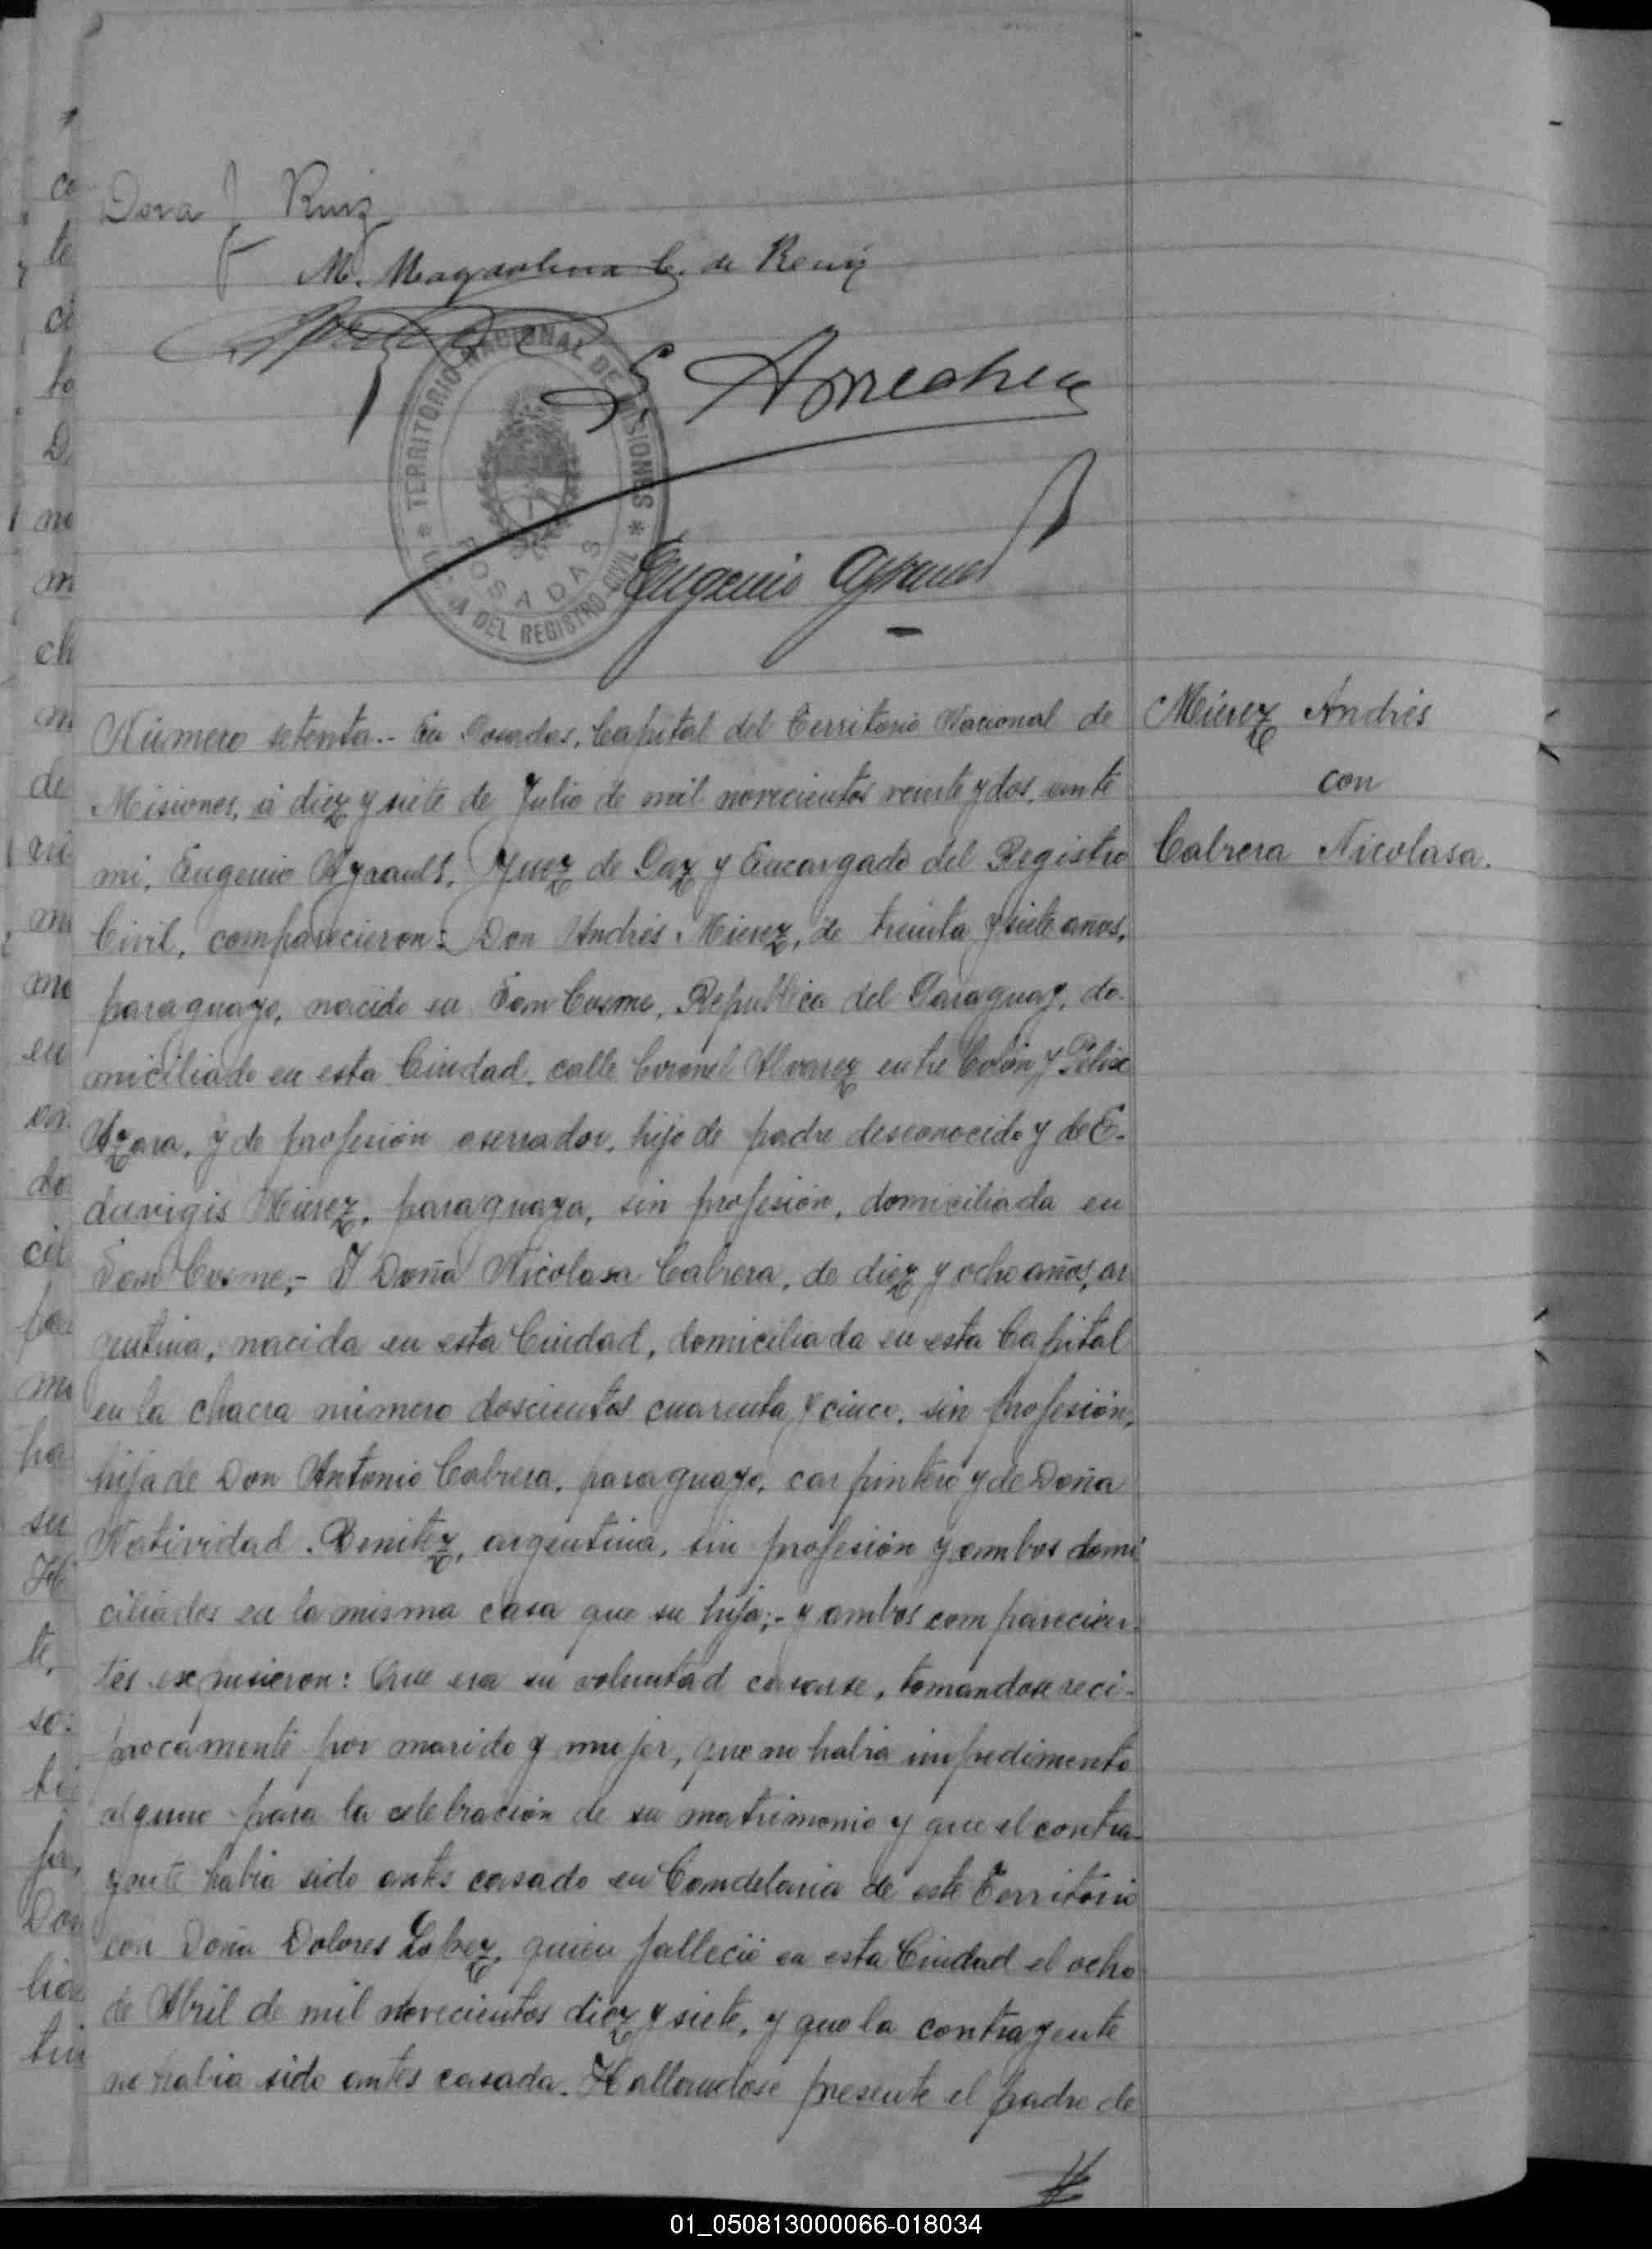 Dora J Ruiz
M. Magdalena C. de Reuy
TERRITORIO NACIONAL DE MISIONES
POSADAS
DEL REGISTRO CIVIL
S. Arrechea
Eugenio Ayrault
Número setenta.- En Posadas, Capital del Territorio Nacional de
Mierez Andrés
Misiones, á diez y siete de Julio de mil novecientos veinte y dos, ante
con
mi, Eugenio Ayrault, Juez de Paz y Encargado del Registro
Cabrera Nicolasa.
Civil, comparecieron: Don Andrés Mierez, de treinta y siete años,
paraguayo, nacido en San Cosme, Republica del Paraguay, do-
miciliado en esta Ciudad, calle Coronel Alvarez entre Colón y Félix
Azara, y de profesión aserrador, hijo de padre desconocido y de E-
duvigis Mierez, paraguaya, sin profesión, domiciliada en
San Cosme;- Y Doña Nicolasa Cabrera, de diez y ocho años, ar
gentina, nacida en esta Ciudad, domiciliada en esta Capital
en la chacra número doscientos cuarenta y cinco, sin profesión,
hija de Don Antonio Cabrera, paraguayo, carpintero y de Doña
Natividad Benitez, argentina, sin profesión y ambos domi
ciliados en la misma casa que su hija;- y ambos comparecien-
tes expusieron: Que era su voluntad casarse, tomandose reci-
procamente por marido y mujer, que no habia impedimento
alguno para la celebración de su matrimonio y que el contra-
yente habia sido antes casado en Candelaria de este Territorio
con Doña Dolores Lopez, quien falleció en esta Ciudad el ocho
de Abril de mil novecientos diez y siete, y que la contrayente
no habia sido antes casada. Hallandose presente el padre de
01_050813000066-018034